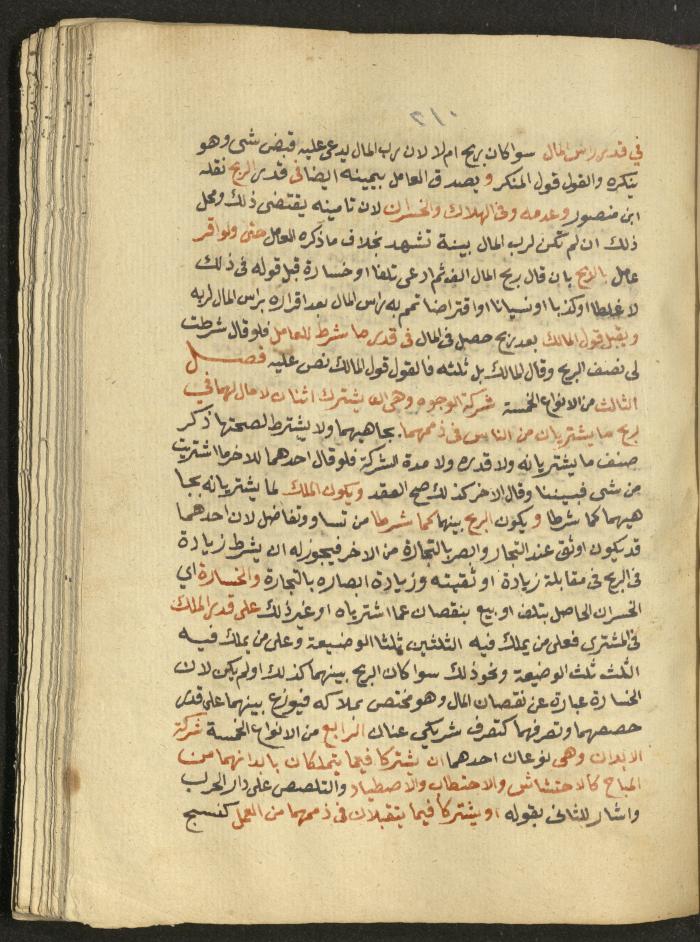 ٢١٠
في قدر راس المال سوا كان ربح ام لا لان رب المال يدعي عليه قبض شي وهو
ينكره والقول قول المنكر و يصدق العامل بيمينه ايضا في قدر الربح نقله
ابن منصور وعدمه وفي الهلاك والخسران لان تامينه يقتضي ذلك ومحل
ذلك ان لم تكن لرب المال بينة تشهد بخلاف ما ذكره العامل حتى ولو اقر
عامل بالربح بان قال ربح المال الف ثم ادعى تلفا او خسارة قبل قوله في ذلك
لا غلطا او كذبا او نسيانا او اقتراضا تمم به راس المال بعد اقراره براس المال لربه
ويقبل قول المالك بعد ربح حصل في المال في قدر ما شرط للعامل فلو قال شرطت
لي نصف الربح وقال المالك بل ثلثه فالقول قول المالك نص عليه فصل
الثالث من الانواع الخمسة شركة الوجوه وهي ان يشترك اثنان لا مال لهما في
ربح ما يشتريان من الناس في ذممهما بجاهيهما ولا يشترط لصحتها ذكر
صنف ما يشتريانه ولا قدره ولا مدة الشركة فلو قال احدهما للاخر ما اشتريت
من شي فبيننا وقال الاخر كذلك صح العقد ويكون الملك لما يشتريانه بجا
هيهما كما شرطا و يكون الربح بينهما كما شرطا من تساو وتفاضل لان احدهما
قد يكون اوثق عند التجار وابصر بالتجارة من الاخر فيجوز له ان يشرط زيادة
في الربح في مقابلة زيادة اوثقيته وزيادة ابصاره بالتجارة والخسارة اي
الخسران الحاصل بتلف او بيع بنقصان عما اشترياه او غير ذلك على قدر الملك
في المشترى فعلى من يملك فيه الثلثين ثلثا الوضيعة وعلى من يملك فيه
الثلث ثلث الوضيعة ونحو ذلك سوا كان الربح بينهما كذلك او لم يكن لان
الخسارة عبارة عن نقصان المال وهو مختص بملاكه فيوزع بينهما على قدر
حصصهما وتصرفهما كتصرف شريكي عنان الرابع من الانواع الخمسة شركة
الابدان وهي نوعان احدهما ان يشتركا فيما يتملكان بابدانهما من
المباح كالاحتشاش والاحتطاب والاصطياد والتلصص على دار الحرب
واشار للثاني بقوله او يشتركا فيما يتقبلان في ذممهما من العمل كنسج